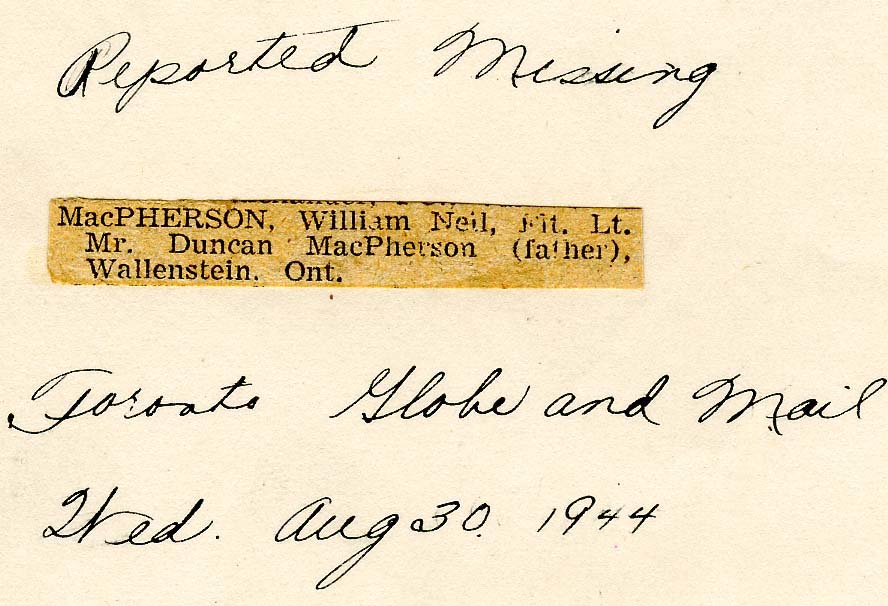 Reported Missing
MacPHERSON, William Neil, Flt. Lt.
Mr. Duncan MacPherson (father),
Wallenstein. Ont.
Toronto Globe and Mail
Wed. Aug 30. 1944